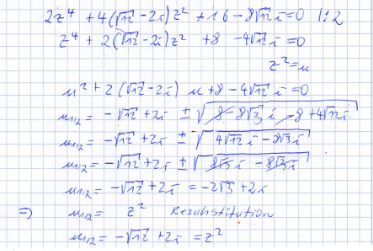 2z⁴ + 4(√12 - 2i)z² + 16 - 8√12 i = 0 | : 2
z⁴ + 2(√12 - 2i)z² + 8 - 4√12 i = 0
z² = u
u² + 2(√12 - 2i) u + 8 - 4√12 i = 0
u₁,₂ = -√12 + 2i ± √(8 - 8√3 i - 8 + 4√12 i)
u₁,₂ = -√12 + 2i ± √(4√12 i - 8√3 i)
u₁,₂ = -√12 + 2i ± √(8√3 i - 8√3 i)
u₁,₂ = -√12 + 2i = -2√3 + 2i
⇒ u₁,₂ = z² Resubstitution
u₁,₂ = -√12 + 2i = z²